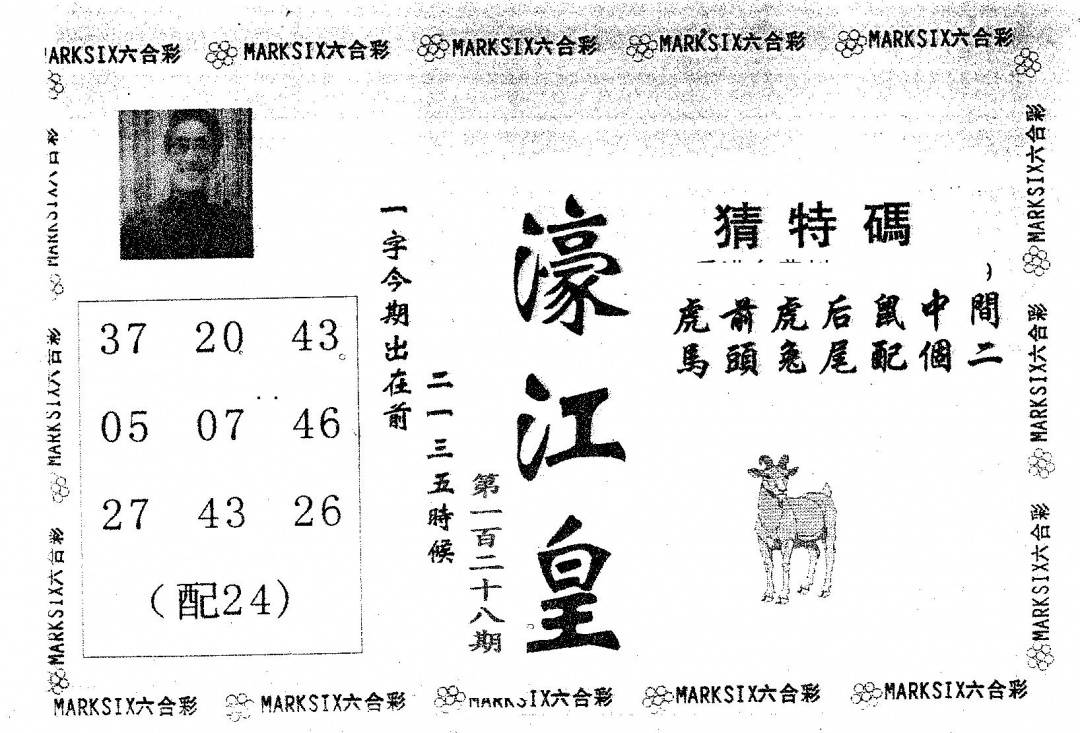 ARKSIX六合彩 MARKSIX六合彩 MARKSIX六合彩 MARKSIX六合彩 MARKSIX六合彩
猜特碼
虎前虎后鼠中間
馬頭兔尾配個二
濠江皇
第一百二十八期
一字今期出在前
二一三五時候
37 20 43
05 07 46
27 43 26
（配24）
MARKSIX六合彩
MARKSIX六合彩
MARKSIX六合彩
MARKSIX六合彩
MARKSIX六合彩
MARKSIX六合彩 MARKSIX六合彩 MARKSIX六合彩 MARKSIX六合彩 MARKSIX六合彩